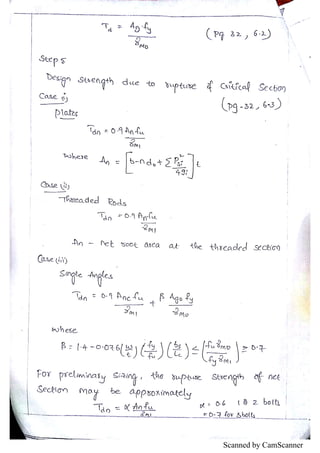 T_d = Ag fy / γm0 (pg 32, 6.2)
Step 5
Design Strength due to rupture of Critical Section
Case i) (pg-32, 6.3)
plates
Tdn = 0.9 An fu / γm1
where An = [b-ndo + Σ Psi² / 4gi] t
Case (ii)
Threaded Rods
Tdn = 0.9 An fu / γm1
An - net root area at the threaded section
Case (iii)
Single Angles
Tdn = 0.9 Anc fu / γm1 + β Ago fy / γm0
where
β = 1.4 - 0.076 (w/t) (fy/fu) (bs/Lc) ≤ (fu γm0 / fy γm1) ≥ 0.7
For preliminary sizing, the rupture strength of net
Section may be approximately
Tdn = α An fu / γm1 α = 0.6 1 & 2 bolts
= 0.7 for 3 bolts
Scanned by CamScanner